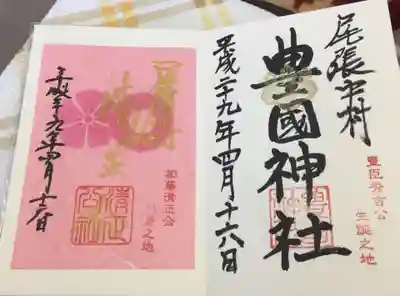 尾張中村
豊臣秀吉公
生誕之地
豊國神社
平成二十九年四月十六日
加藤清正公
生誕之地
清正公社
平成二十九年四月十六日